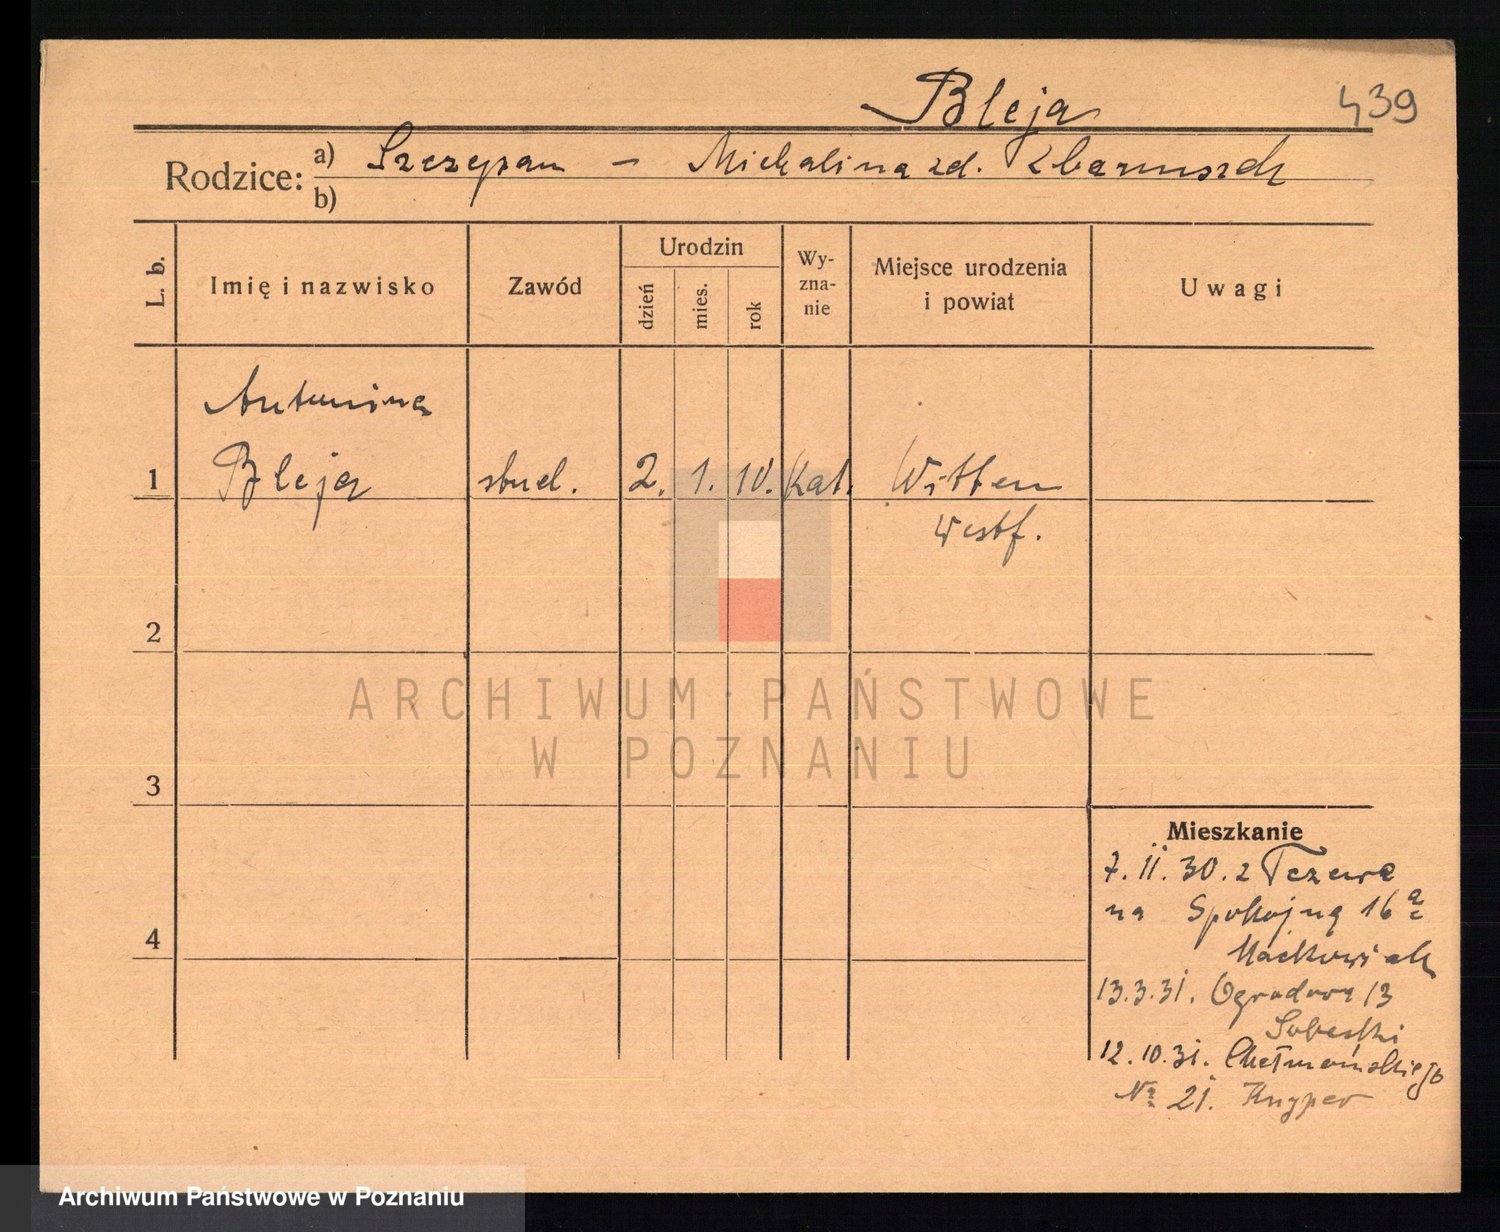 Bleja
439
Rodzice: a) Szczepan – Michalina zd.
b)
L. b.
Imię i nazwisko
Zawód
Urodzin
dzień
mies.
rok
Wy-
zna-
nie
Miejsce urodzenia
i powiat
Uwagi
Antonina
1 Bleja stud. 2. 1. 10. Kat. Witten
Westf.
2
ARCHIWUM PAŃSTWOWE
W POZNANIU
3
Mieszkanie
7. II. 30. z Tczewa
4
na Spokojną 16 a
Maćkowiak
13.3.31. Ogrodowa 13
Sobeski
12.10.31. Chełmońskiego
№ 21. Knyper
Archiwum Państwowe w Poznaniu